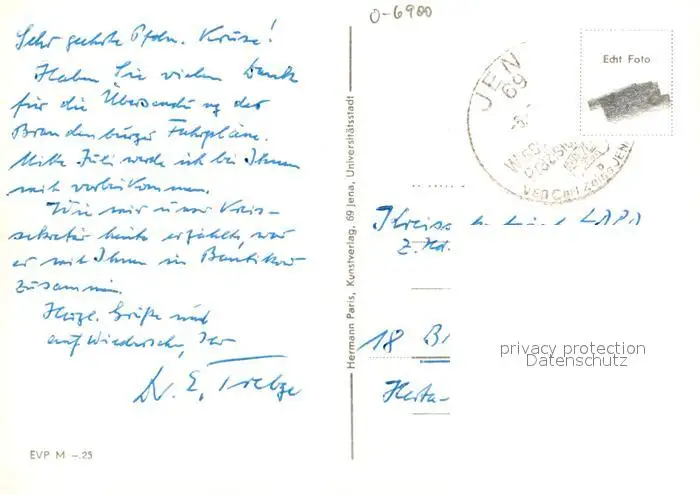 O-6900
Sehr geehrte Pfdn. Kruse!
Haben Sie vielen Dank
für die Übersendung der
Brandenburger Fahrpläne.
Mitte Juli werde ich bei Ihnen
mit vorbeikommen.
Wie mir unser Kreis-
sekretär heute erzählte, war
er mit Ihnen in Bantikow
zusammen.
Herzl. Grüße und
auf Wiedersehen, Ihr
Dr. E.
EVP M -.25
Hermann Paris, Kunstverlag, 69 Jena, Universitätsstadt
Echt Foto
JEN
69
VEB Carl Zeiss JENA
Z. Hd.
18 B
privacy protection
Datenschutz